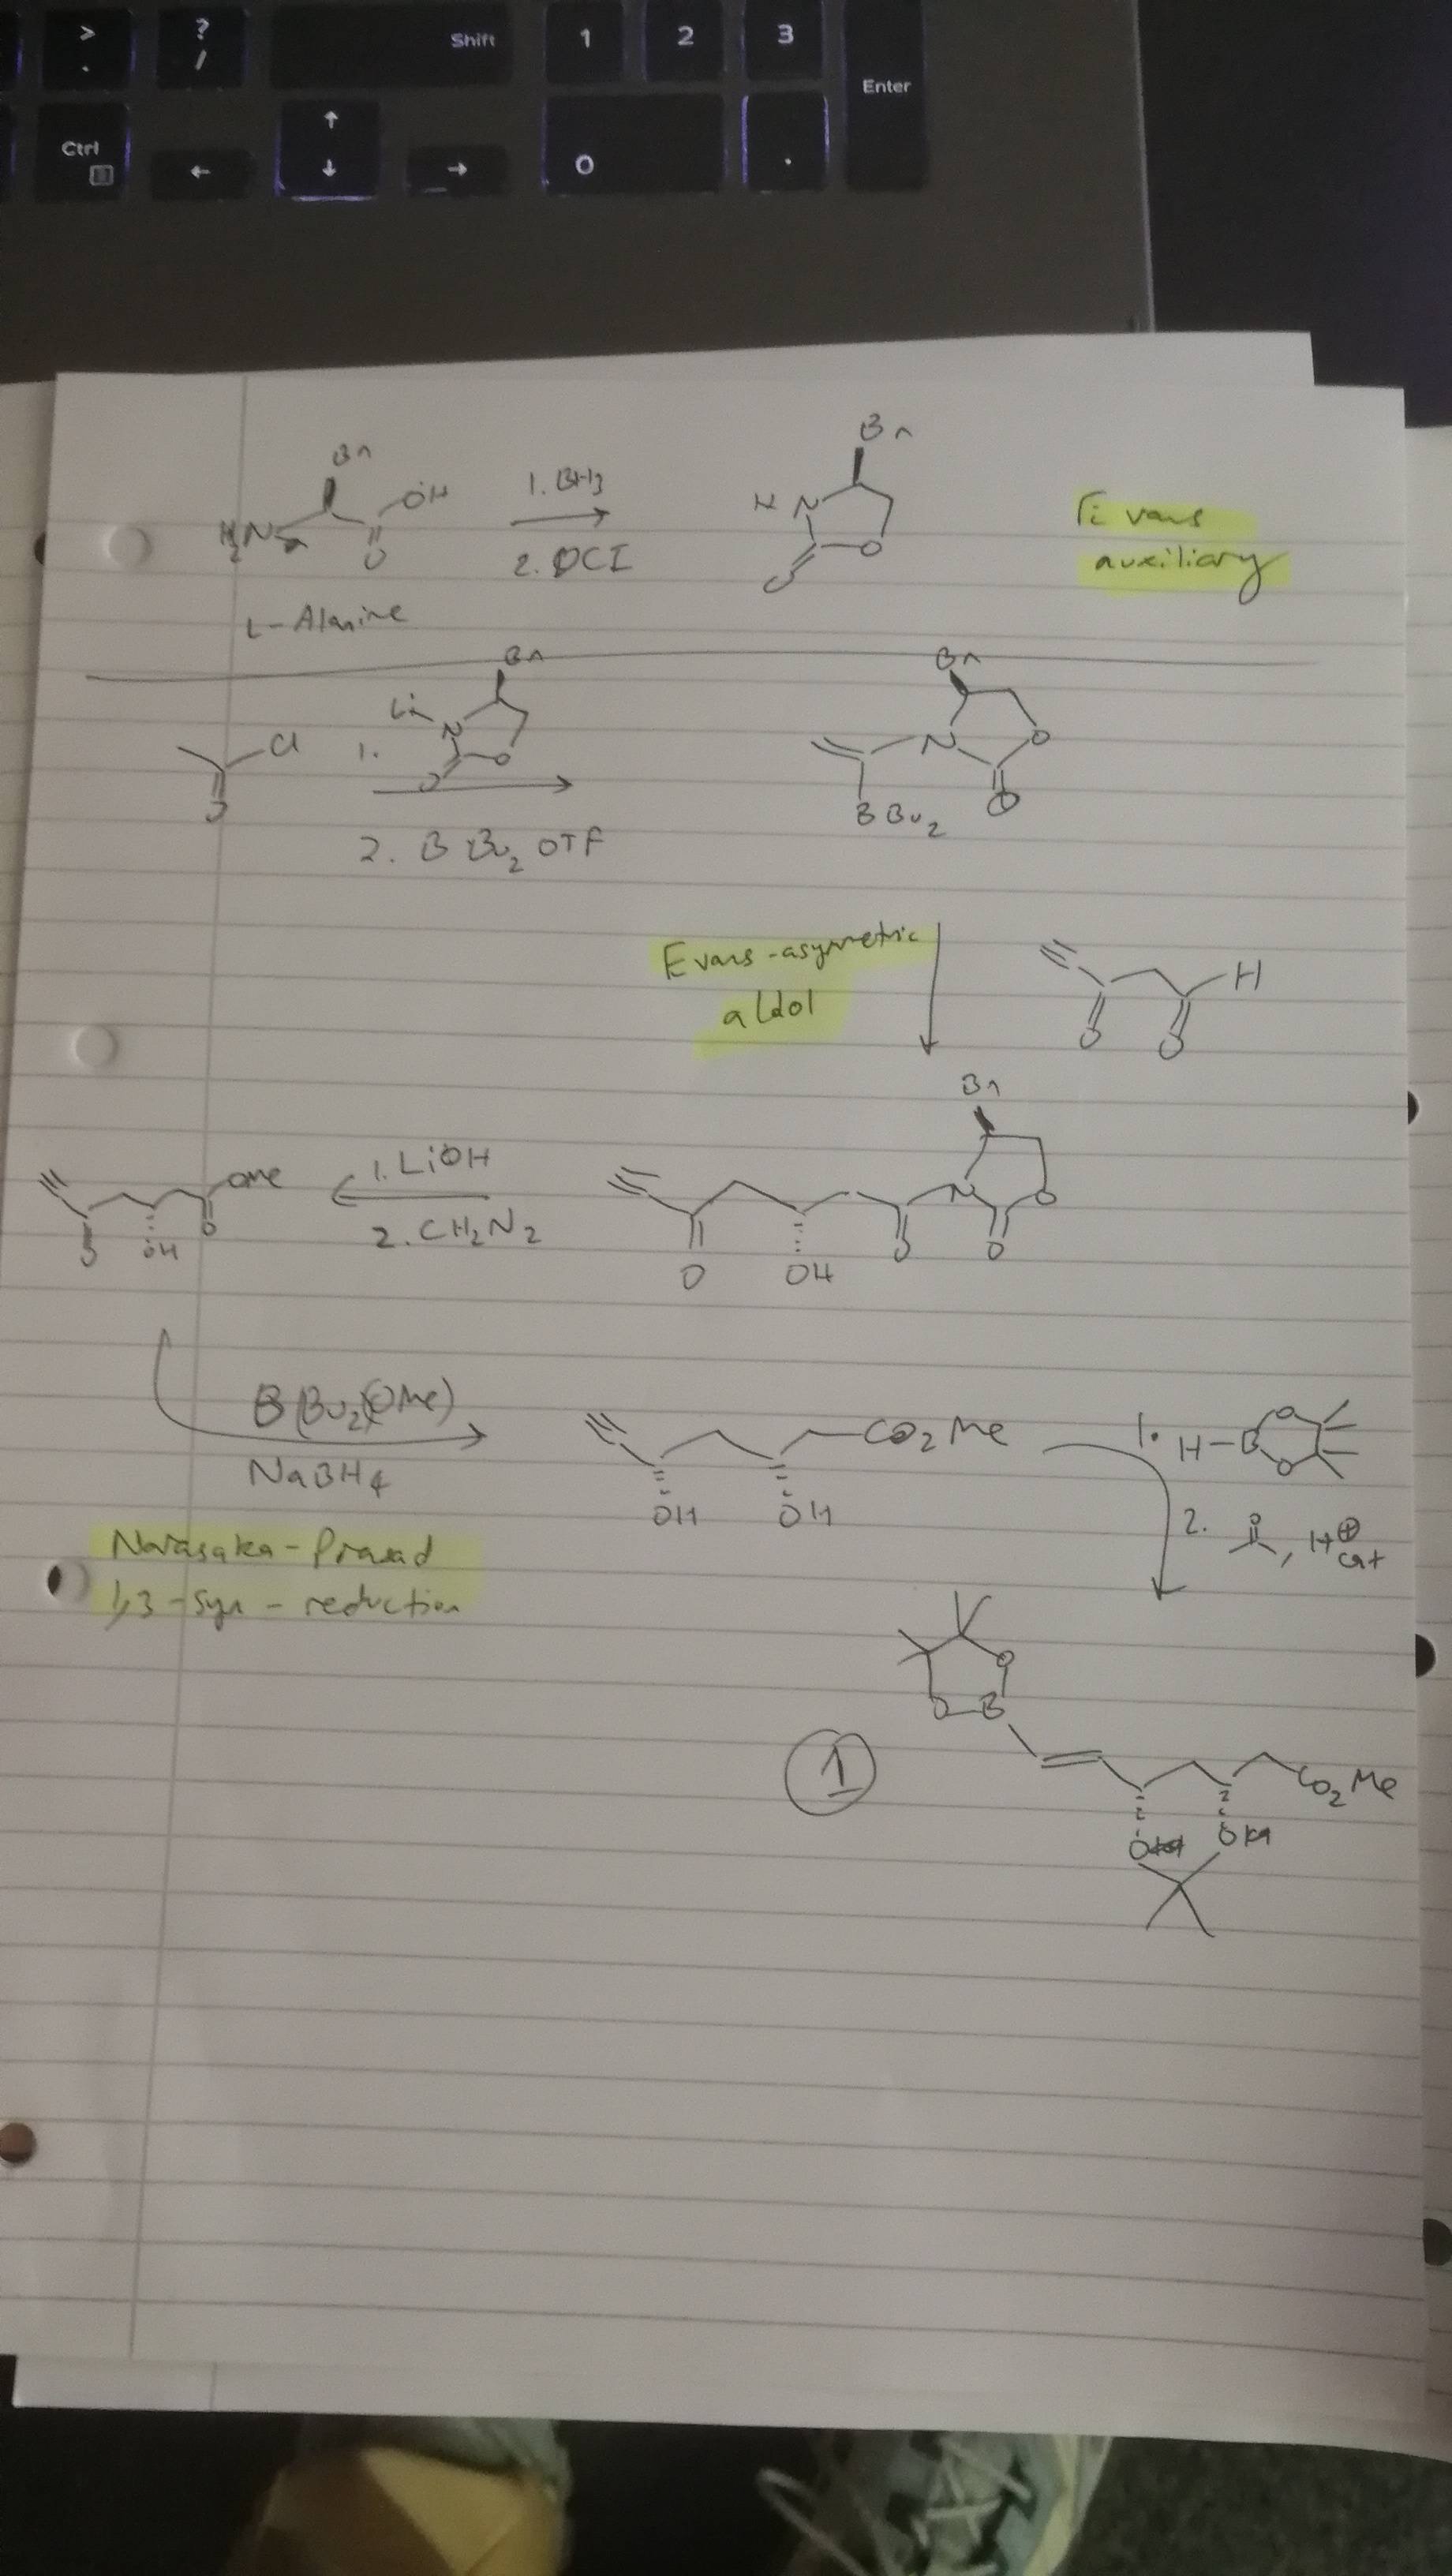 > ? Shift 1 2 3
. /
Enter
Ctrl ↑ 0 .
← ↓ →
Bn
H2N OH O
1. BH3
2. DCI
L-Alanine
Bn
H N O O
Evans
auxiliary
Cl O
1. Li N Bn O O
2. BBu2OTF
Bn
N O O
BBu2
Evans-asymetric
aldol
H
O O
Bn
N O
O OH O O
1. LiOH
2. CH2N2
OMe
O OH O
B(Bu2)(OMe)
NaBH4
CO2Me
OH OH
1. H-B O O
2. O , H⊕
cat
Narasaka-Prasad
1,3-syn-reduction
O
O B
1
CO2Me
O O